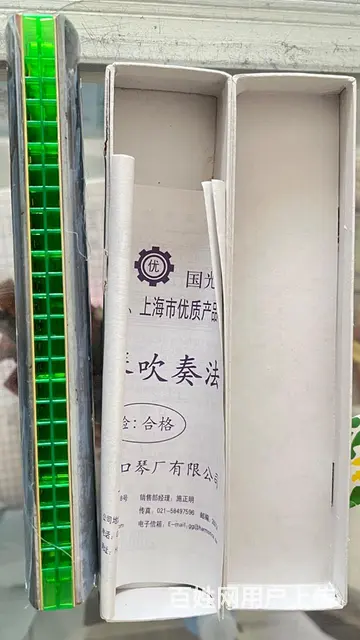 优
国光
、上海市优质产品
吹奏法
检:合格
口琴厂有限公司
销售部经理:施正明
传真:021-58497596 邮编:
电子信箱:E-mail:gg@harmonica
公司地
电话:
百姓网用户上传